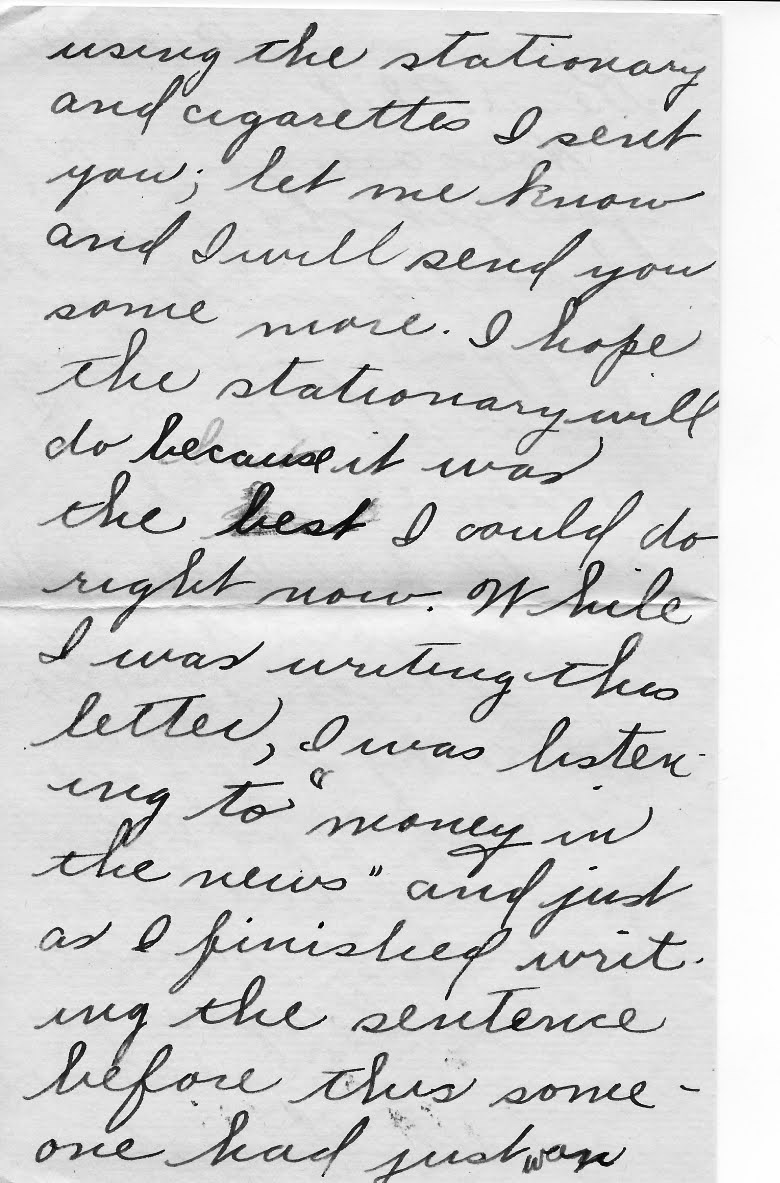 using the stationary
and cigarettes I sent
you; let me know
and I will send you
some more. I hope
the stationary will
do because it was
the best I could do
right now. While
I was writing this
letter, I was listen-
ing to "money in
the news" and just
as I finished writ-
ing the sentence
before this some-
one had just won